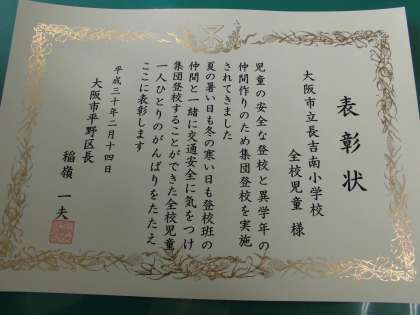 表彰状
大阪市立長吉南小学校
全校児童 様
児童の安全な登校と異学年の
仲間作りのため集団登校を実施
されてきました
夏の暑い日も冬の寒い日も登校班の
仲間と一緒に交通安全に気をつけ
集団登校することができた全校児童
一人ひとりのがんばりをたたえ
ここに表彰します
平成三十年二月十四日
大阪市平野区長
稲嶺 一夫